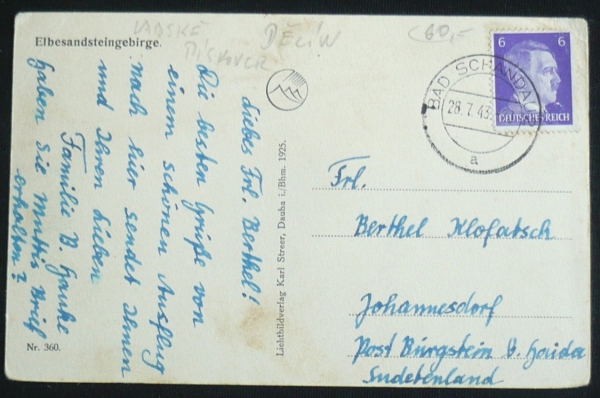 Elbesandsteingebirge.
LABSKÉ
PÍSKOVCE
DĚČÍN
60,-
Liebes Frl. Berthel!
Die besten Grüße von
einem schönen Ausflug
nach hier sendet Ihnen
und Ihren Lieben
Familie B. Hanke
haben Sie Muttis Brief
erhalten?
Nr. 360.
Lichtbildverlag Karl Streer, Dauba i./Böhm. 1925.
6 6
DEUTSCHES REICH
BAD SCHANDAU
28.7.43
a
Frl.
Berthel Klofatsch
Johannesdorf
Post Bürgstein b. Haida
Sudetenland